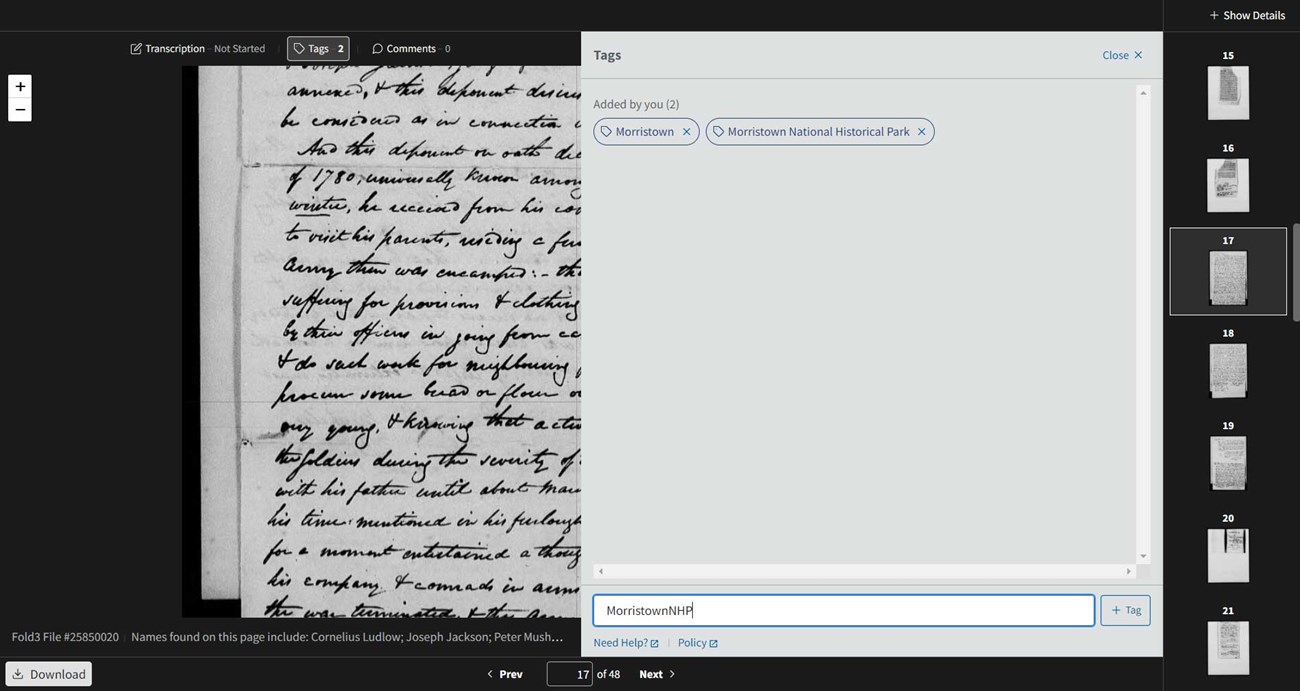 + Show Details
Transcription - Not Started
Tags - 2
Comments - 0
Tags
Close ×
Added by you (2)
Morristown ×
Morristown National Historical Park ×
+
−
annexed, & this deponent
be considered as in connection
And this deponent on oath
of 1780, universally known among
winter, he received from his
to visit his parents, residing a few
Army then was encamped: - tha
suffering for provisions & clothing
by their officers in going from
& do such work for neighbouring
procure some bread or flour
very young, & knowing that
the soldiers during the severity of
with his father until about
his time mentioned in his furlough
for a moment entertained a thoug
his company & comrads in arms
the war terminated, & this
MorristownNHP
+ Tag
Need Help?
Policy
Fold3 File #25850020
Names found on this page include: Cornelius Ludlow; Joseph Jackson; Peter Mush...
Download
< Prev
17 of 48
Next >
15
16
17
18
19
20
21